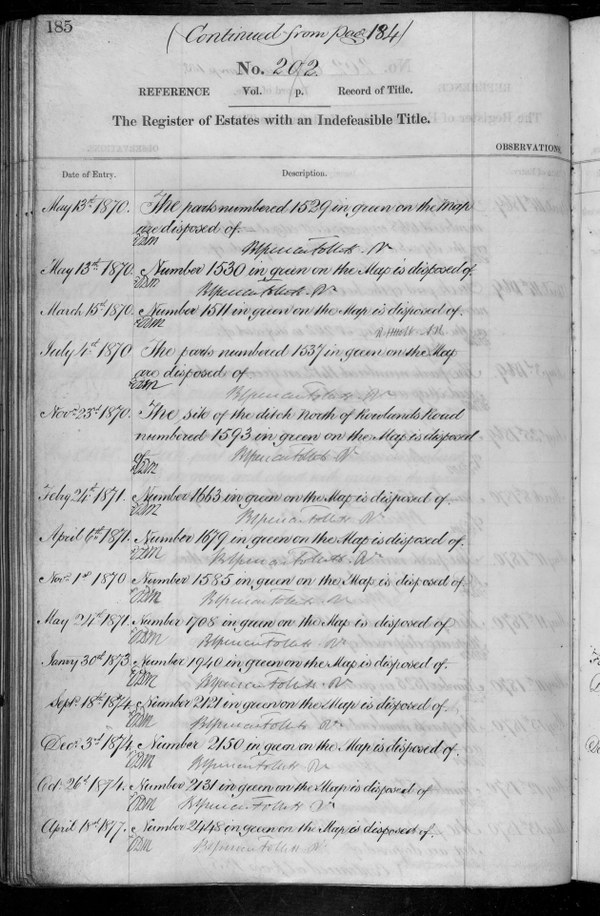 185
(Continued from page 184)
No. 202.
REFERENCE Vol. p. Record of Title.
The Register of Estates with an Indefeasible Title.
OBSERVATIONS
Date of Entry. Description.
May 13th 1870. The parts numbered 1529 in green on the Map
are disposed of.
Brent Spencer Follett. Rr
May 13th 1870. Number 1530 in green on the Map is disposed of
BSpencer Follett. Rr
March 15th 1870. Number 1511 in green on the Map is disposed of.
July 4th 1870 The parts numbered 1537 in green on the Map
are disposed of
BSpencer Follett. Rr
Novr 23rd 1870. The site of the ditch North of Rowlands Road
numbered 1593 in green on the Map is disposed
of.
BSpencer Follett Rr
Feby 24th 1871. Number 1663 in green on the Map is disposed of.
BSpencer Follett Rr
April 6th 1871. Number 1679 in green on the Map is disposed of.
BSpencer Follett. Rr
Novr 1st 1870 Number 1585 in green on the Map is disposed of
BSpencer Follett. Rr
May 24th 1871. Number 1708 in green on the Map is disposed of.
BSpencer Follett Rr
Janry 30th 1873. Number 1940 in green on the Map is disposed of.
BSpencer Follett. Rr
Septr 18th 1874. Number 2121 in green on the Map is disposed of.
BSpencer Follett Rr
Decr 3rd 1874. Number 2150 in green on the Map is disposed of.
BSpencer Follett Rr
Oct 26th 1874. Number 2131 in green on the Map is disposed of
BSpencer Follett Rr
April 18th 1877. Number 2448 in green on the Map is disposed of.
BSpencer Follett Rr